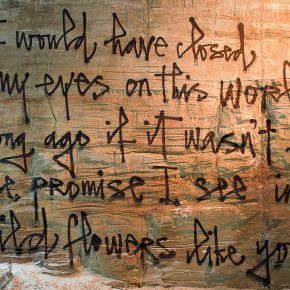 I would have closed
my eyes on this world
long ago if it wasn't
the promise I see in
wild flowers like you